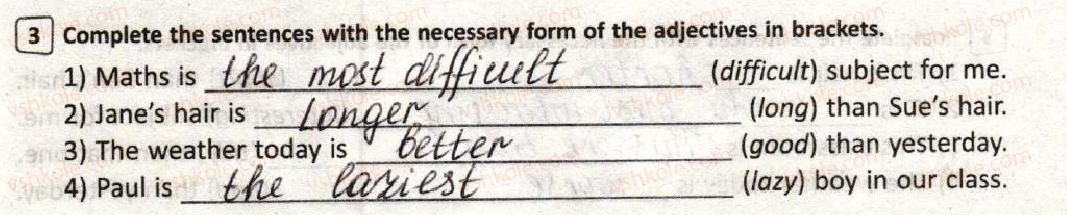 3 Complete the sentences with the necessary form of the adjectives in brackets.
1) Maths is the most difficult (difficult) subject for me.
2) Jane's hair is longer (long) than Sue's hair.
3) The weather today is better (good) than yesterday.
4) Paul is the laziest (lazy) boy in our class.